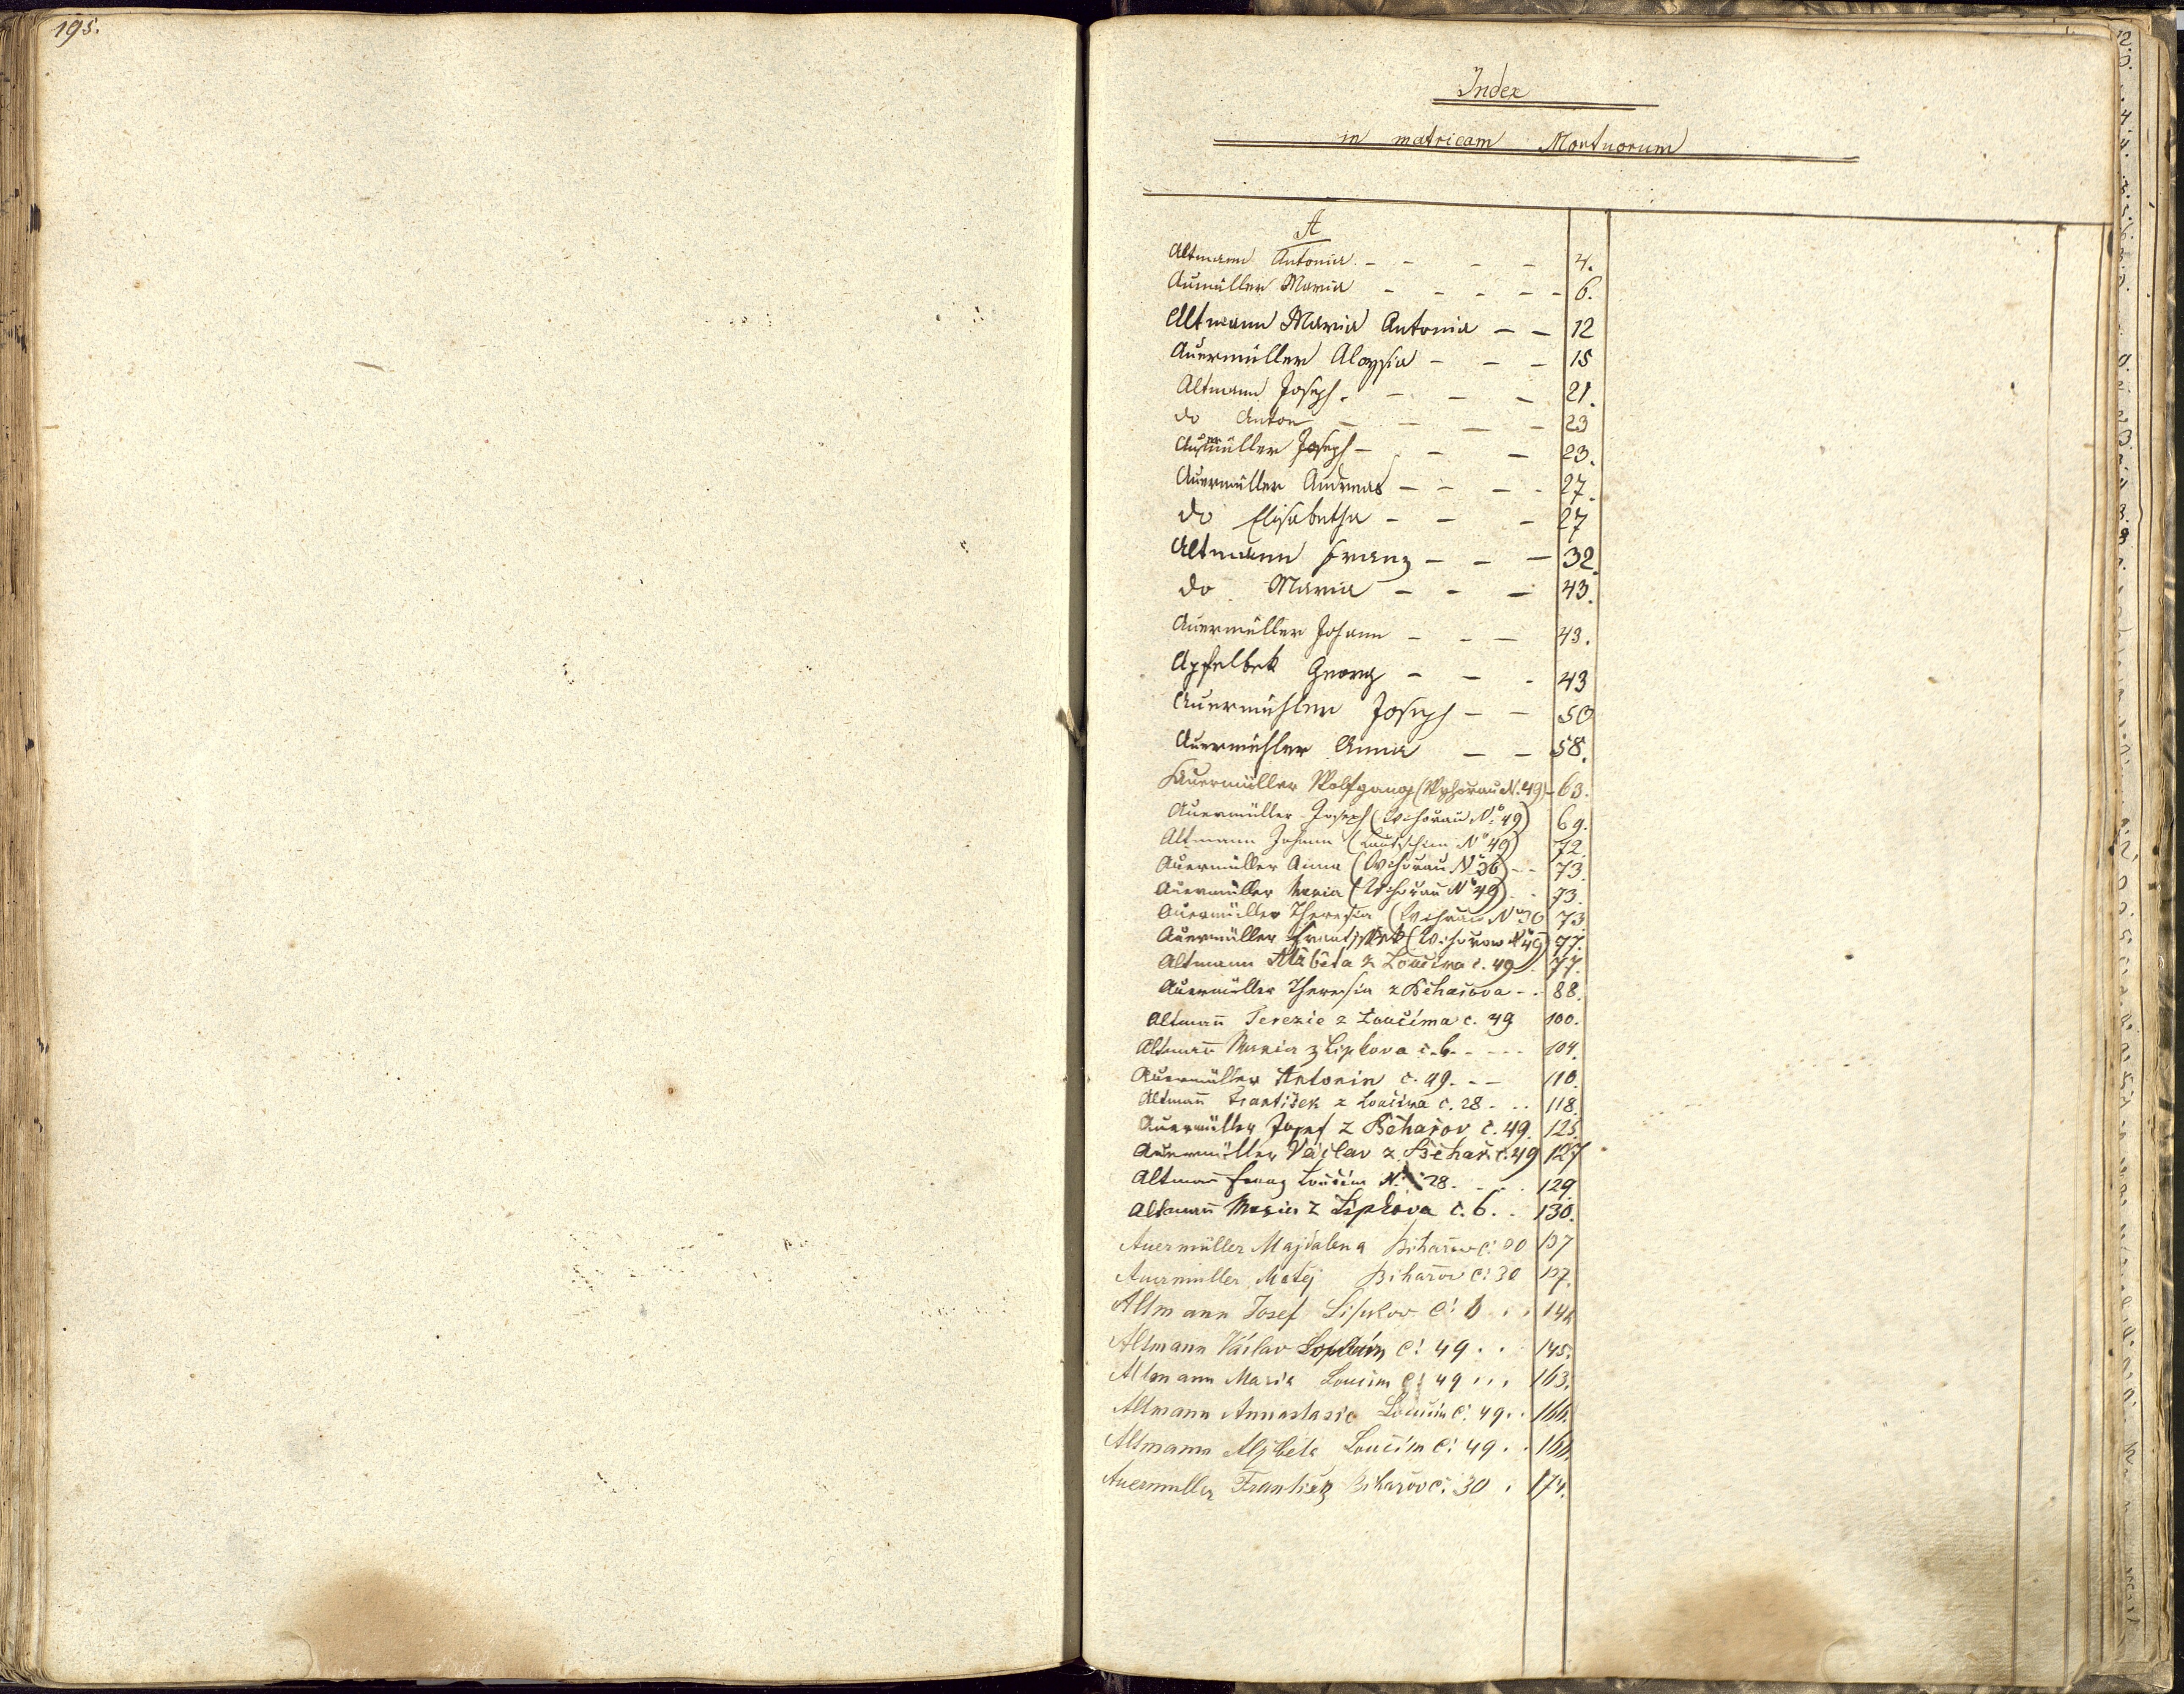 195.
Index
in matricam Mortuorum
A
Altmann Antonia - - - - 4.
Aumüller Maria - - - - - 6.
Altmann Maria Antonia - - 12
Auermüller Aloysia - - - 15
Altmann Joseph - - - - 21.
do Anton - - - - 23
Auermüller Joseph - - - 23.
Auermüller Andreas - - - - 27.
do Elisabetha - - - 27
Altmann Franz - - - 32.
do Maria - - - 43.
Auermüller Johann - - - 43.
Apfelbek Georg - - - 43
Auermühler Joseph - - 50
Auermühler Anna - - 58.
Auermüller Wolfgang (N. 49) - 63.
Auermüller Joseph (Wihorau No 49) 69.
Altmann Johann (Lautschim No 49) 72.
Auermüller Anna (Wihorau No 36) - - 73.
Auermüller Maria (Wihorau No 49) - 73.
Auermüller Theresia (Wihorau No 30 73
Auermüller Frantissek (Wihorow No 49) 77.
Altmann Alžběta z Loučima č. 49 - 77.
Auermüller Theresia z Běhařova - - 88.
Altmann̄ Terezie z Loučima č. 49 100.
Altman̄ Maria z Lipkova č. 6. - - - - 104.
Auermüller Antonin č. 49. - - 110.
Altman̄ František z Loučima č. 28 - - - 118.
Auermüller Josef z Běhařov č. 49. 125.
Auermüller Václav z Běhař. č. 49 127
Altman̄ Franz Loučim N. 28. - - - 129.
Altman̄ Maria z Lipkova č. 6. . 130.
Auermüller Majdalena Bihařow č: 30 137
Auermüller Matěj Bihařov č: 30 137.
Altmann Josef Lipkov č: 6 . .
Altmann Václav č: 49 . . 145.
Altmann Maria Loučim č: 49 . . . 163.
Altmann Annastasie Loučim č: 49 . . 166.
Altmann Alžběta Loučim č: 49 . . 166.
Auermuller František Bihařov č: 30 . 174.